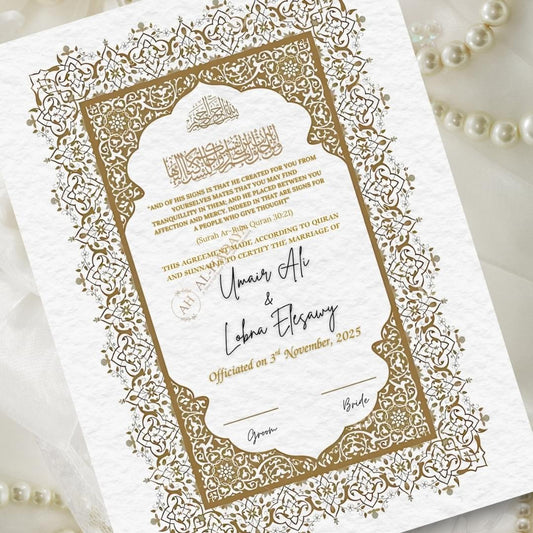 "AND OF HIS SIGNS IS THAT HE CREATED FOR YOU FROM
YOURSELVES MATES THAT YOU MAY FIND
TRANQUILLITY IN THEM; AND HE PLACED BETWEEN YOU
AFFECTION AND MERCY. INDEED IN THAT ARE SIGNS FOR
A PEOPLE WHO GIVE THOUGHT"
(Surah Ar-Rum Quran 30:21)
THIS AGREEMENT MADE ACCORDING TO QURAN
AND SUNNAH IS TO CERTIFY THE MARRIAGE OF
Umair Ali
&
Lobna Elesawy
Officiated on 3rd November, 2025
Groom
Bride
AH